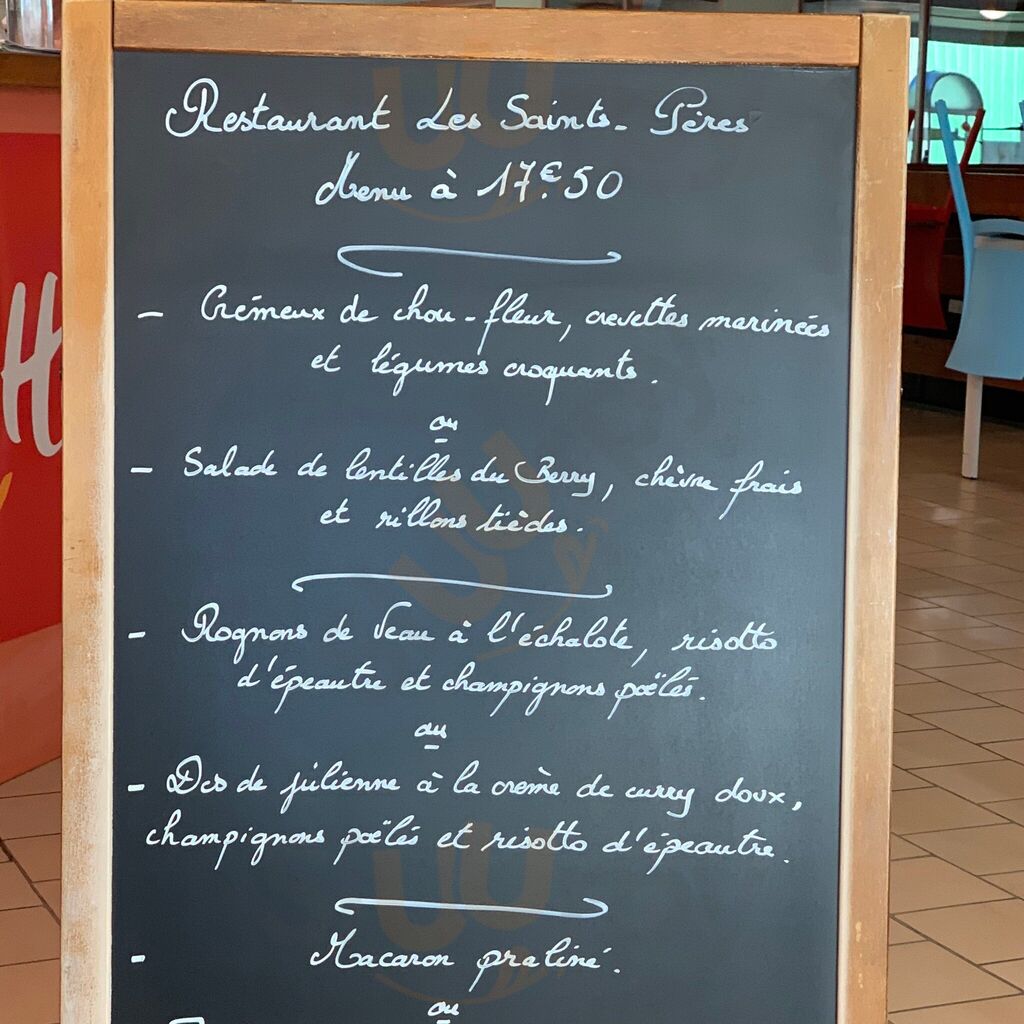 Restaurant Les Saints-Pères
Menu à 17€.50
- Crémeux de chou-fleur, crevettes marinées
et légumes croquants.
ou
- Salade de lentilles du Berry, chèvre frais
et rillons tièdes.
- Rognons de Veau à l'échalote, risotto
d'épeautre et champignons poëlés.
ou
- Dos de julienne à la crème de curry doux,
champignons poëlés et risotto d'épeautre.
- Macaron praliné.
ou
H